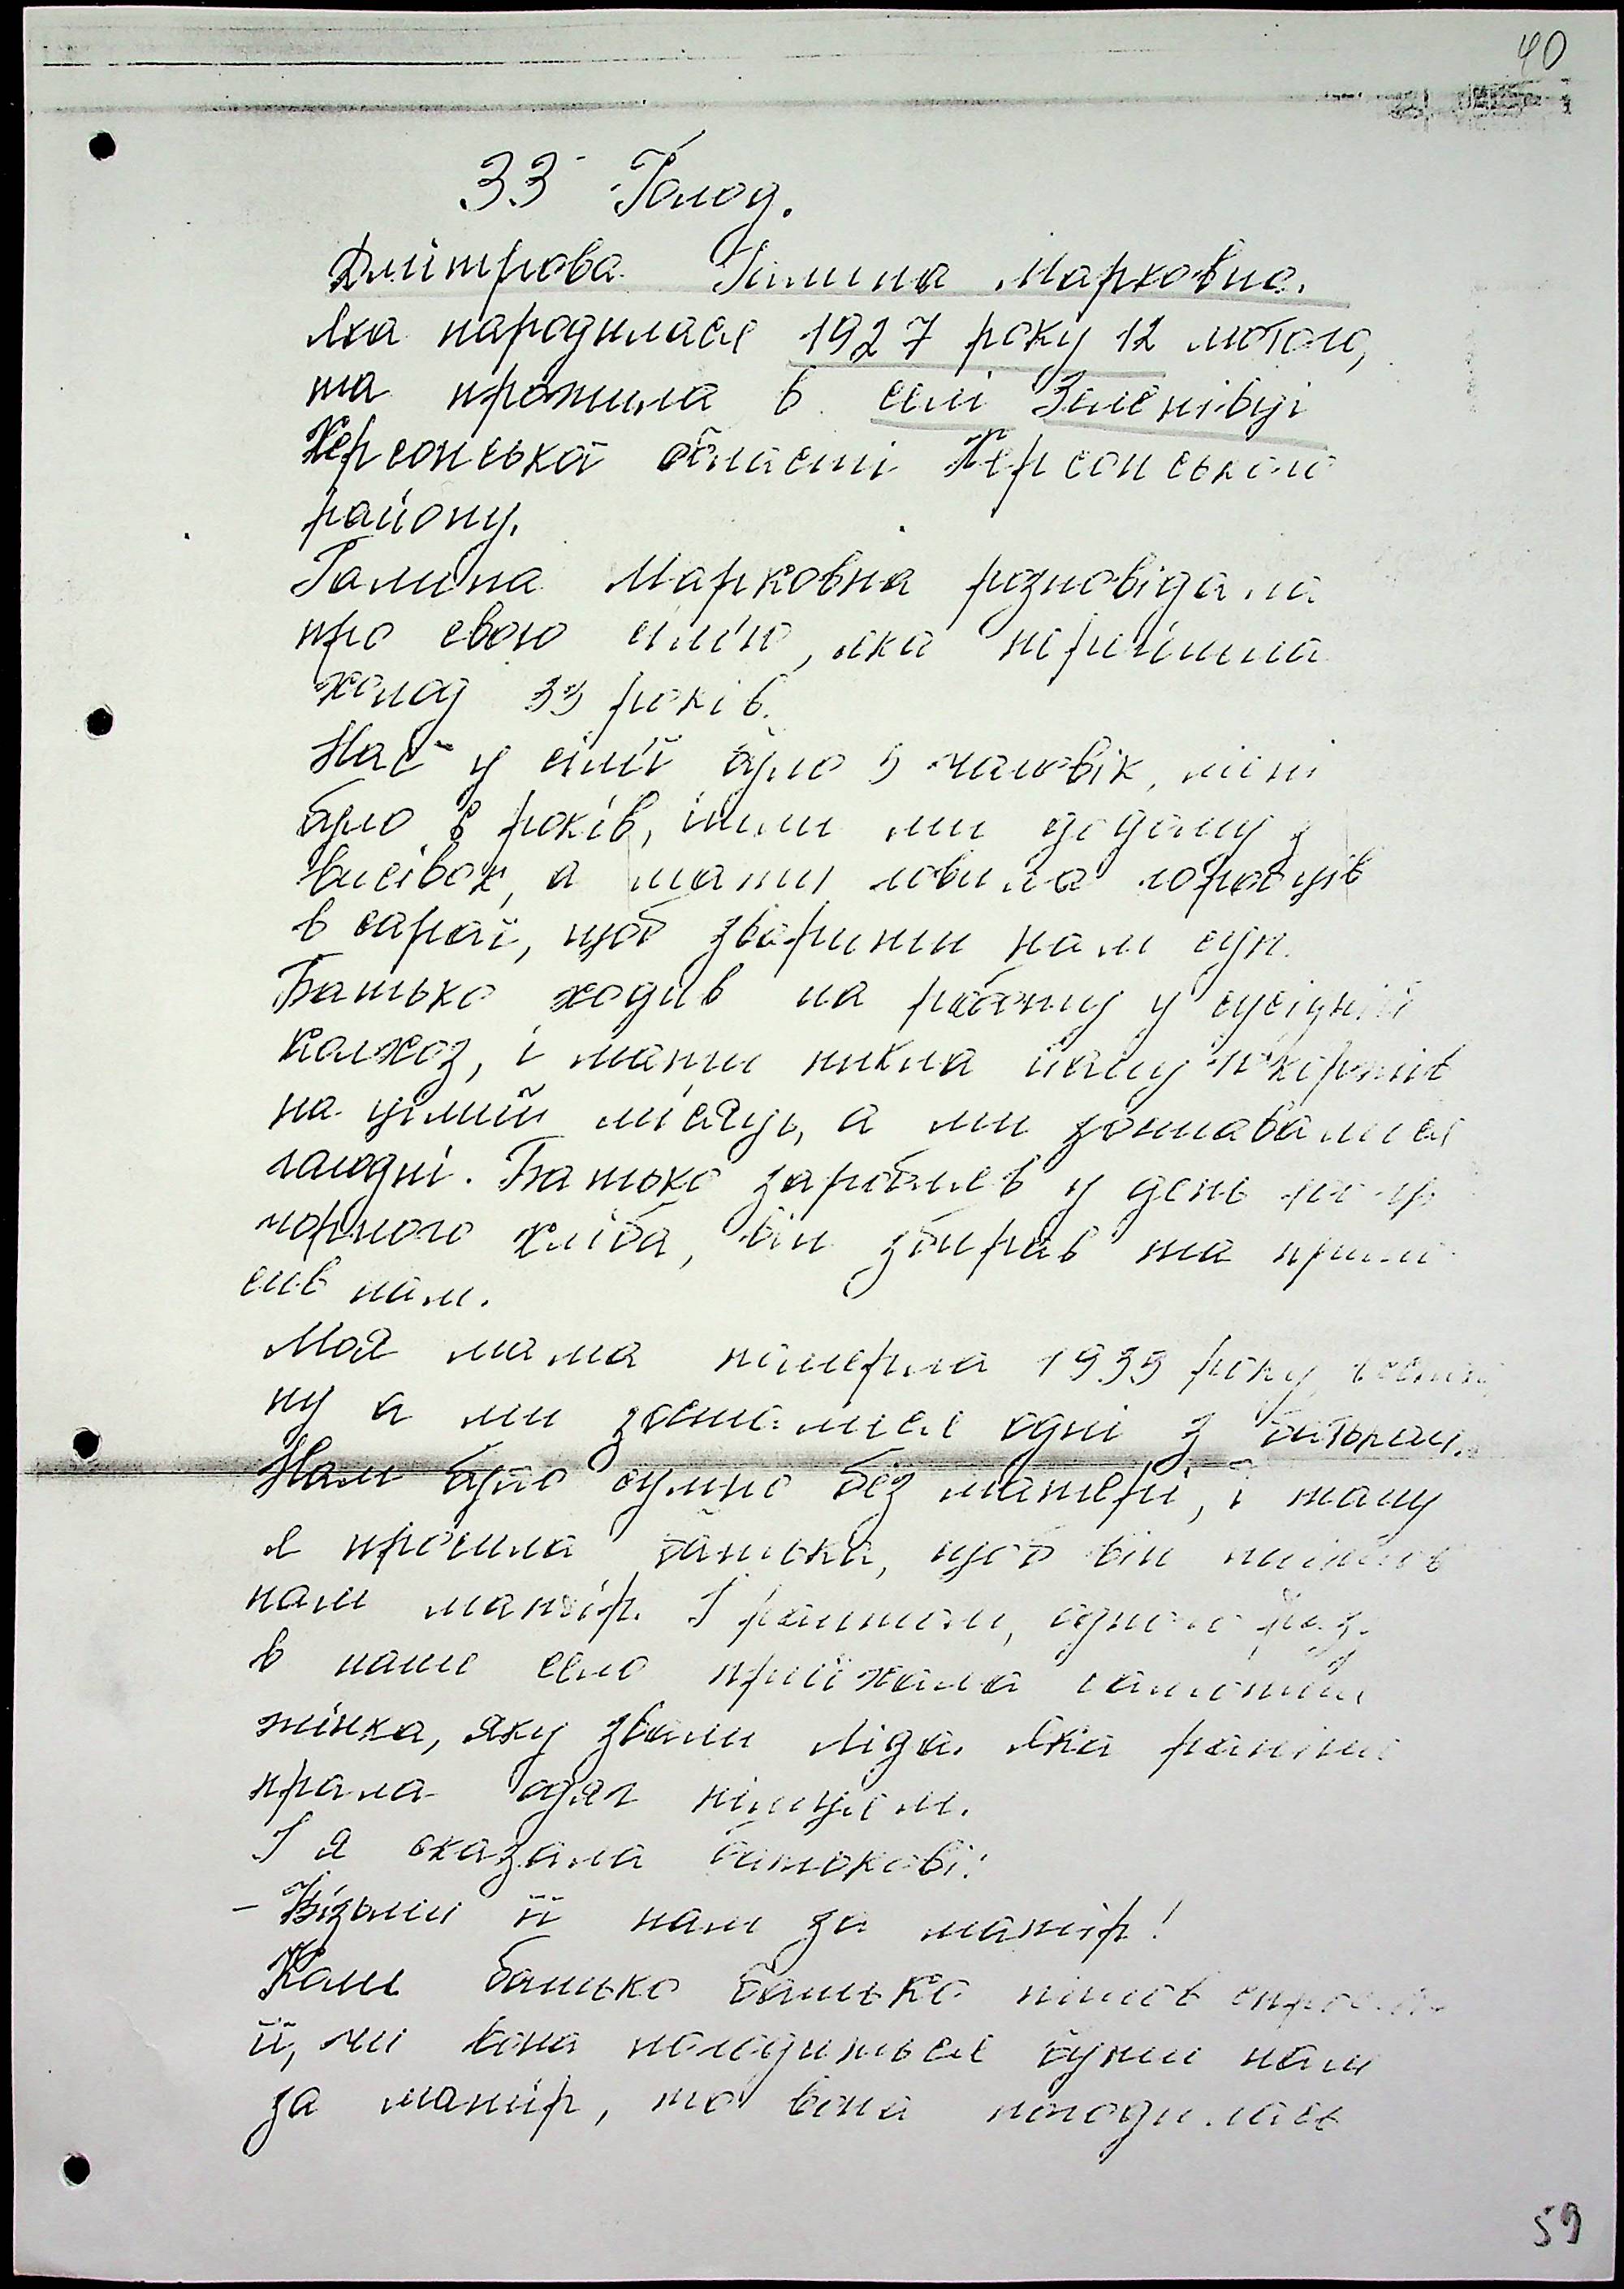 40
33 Голод.
Дмітрова Галина Марковна.
Яка народилася 1927 року 12 лютого,
та прожила в селі Зеленівці
Херсонської області Херсонського
району.
Галина Марковна розповідала
про свою сім'ю, яка пережила
холод 33 років.
Нас у сім'ї було 5 чоловік, мені
було 6 років, їжли ми додому з
висівок, а мати ловила горобців
в сараї, щоб зварити нам суп.
Батько ходив на работу у сусідній
колхоз, і мати пикла йому
на цілий місяць, а ми зоставалися
голодні. Батько заробляв у день
чорного хліба, він збирав та прино
сив нам.
Моя мама померла 1935 року,
ну а ми зосталися одні з батьком.
Нам було сумно без матері, і тому
я просила батька, щоб він найшов
нам матір. І раптом, одного разу
в наше село приїхала самотня
жінка, яку звали Ліда. Яка раніше
прала одяг німцям.
І я сказала батькові:
- Візьми її нам за матір!
Коли батько батько пішов
її, чи вона погодиться бути нам
за матір, то вона погодилась
59